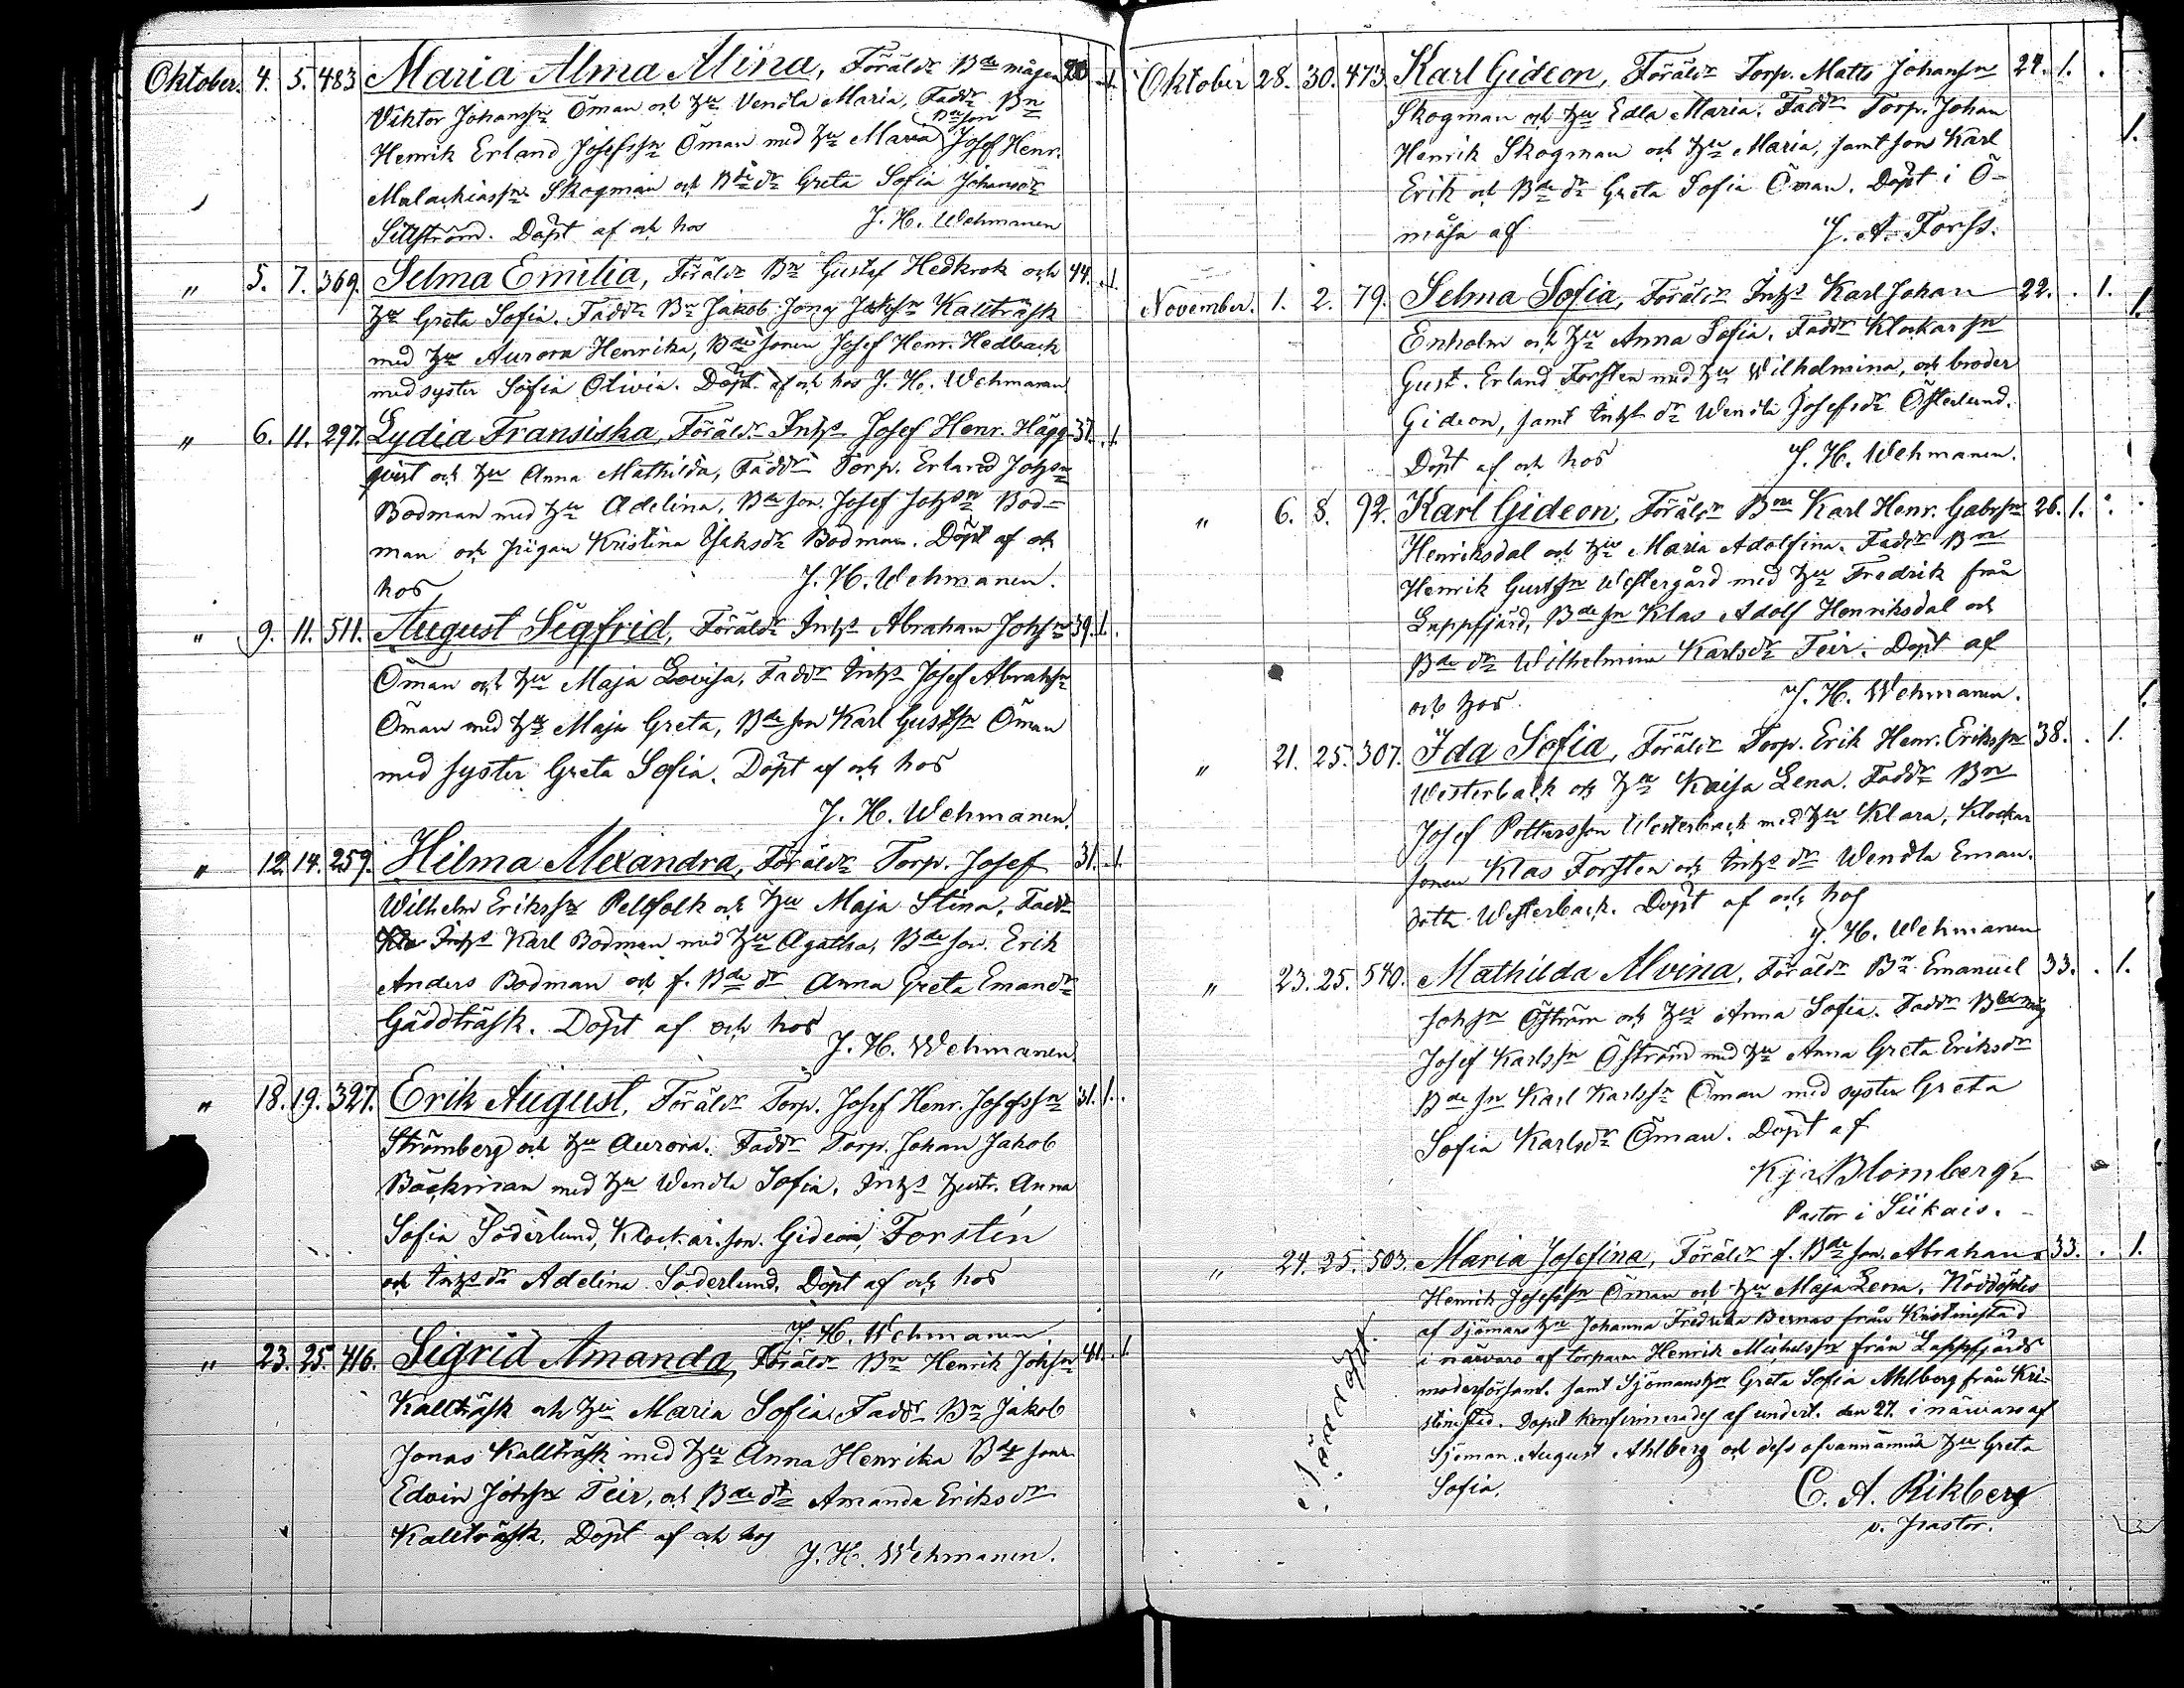 Oktober. 4. 5. 483 Maria Alma Alina, Föräldr Bde mågen 20 .1.
Viktor Johanssn Öman och Hu Vendla Maria, Faddr Bn
Henrik Erland Josefssn Öman med Hu Maria, Bneson Josef Henr.
Malackiassn Skogman och Bde dr Greta Sofia Johansdr
Sillström. Döpt af och hos J. H. Wehmanen
" 5. 7. 369. Selma Emilia, Föräldr Bn Gustaf Hedkrok och 44. .1.
Hu Greta Sofia. Faddr Bn Jakob Kallträsk
med Hu Aurora Henrika, Bde sonen Josef Henr. Hedback
med syster Sofia Olivia. Döpt af och hos J. H. Wehmanen
" 6. 11. 297. Lydia Fransiska, Föräldr Inhs Josef Henr. Hägg- 37. .1.
qvist och Hu Anna Mathilda, Faddr Torp. Erland Johsn
Bodman med Hu Adelina, Bde son Josef Johsn Bod-
man och pigan Kristina Isaksdr Bodman. Döpt af och
hos J. H. Wehmanen.
" 9. 11. 511. August Sigfrid, Föräldr Inhs Abraham Johsn 39. 1.
Öman och Hu Maja Lovisa, Faddr Inhs Josef Abrahsn
Öman med Hu Maja Greta, Bde son Karl Gustsn Öman
med syster Greta Sofia. Döpt af och hos
J. H. Wehmanen.
" 12. 14. 259. Hilma Alexandra, Föräldr Torp. Josef 31. .1.
Wilhelm Erikssn Pellfolk och Hu Maja Stina, Faddr
Inhs Karl Bodman med Hu Agatha, Bde son Erik
Anders Bodman och f. Bde dr Anna Greta Emandr
Gäddträsk. Döpt af och hos
J. H. Wehmanen
" 18. 19. 327. Erik August, Föräldr Torp. Josef Henr. Josefssn 31. 1.
Strömberg och Hu Aurora. Faddr Torp. Johan Jakob
Bäckman med Hu Wendla Sofia, Inhs hustr. Anna
Sofia Söderlund, Klockar. son. Gideon Forstén
och Inhs dr Adelina Söderlund. Döpt af och hos
J. H. Wehmanen.
" 23. 25. 416. Sigrid Amanda, Föräldr Bn Henrik Johsn 41. .1.
Kallträsk och Hu Maria Sofia, Faddr Bn Jakob
Jonas Kallträsk med Hu Anna Henrika Bde sonen
Edvin Johssn Teir, och Bde dr Amanda Eriksdr
Kallträsk. Döpt af och hos
J. H. Wehmanen.
Oktober 28. 30. 473. Karl Gideon, Föräldr Torp. Matts Johanssn 24. 1. .
Skogman och Hu Edla Maria. Faddr Torp. Johan
Henrik Skogman och Hu Maria, samt son Karl 1.
Erik och Bde dr Greta Sofia Öman. Döpt i Ö-
måsa af J. A. Forss.
November. 1. 2. 79. Selma Sofia, Föräldr Inhs Karl Johan 22. . 1. 1.
Enholm och Hu Anna Sofia. Faddr Klockar sn
Gust. Erland Forsten med Hu Wilhelmina, och broder
Gideon, samt Inhs dr Wendla Josefsdr Österlund.
Döpt af och hos J. H. Wehmanen.
" 6. 8. 92. Karl Gideon, Föräldr Bon Karl Henr. Gabrsn 26. 1. .
Henriksdal och Hu Maria Adolfina. Faddr Bn
Henrik Gustsn Westergård med Hu Fredrik från
Lappfjärd, Bde sn Klas Adolf Henriksdal och
Bde dr Wilhelmina Karlsdr Teir. Döpt af
och hos J. H. Wehmanen. 1.
" 21. 25. 307. Ida Sofia, Föräldr Torp. Erik Henr. Erikssn 38. . 1.
Westerback och Hu Kaisa Lena. Faddr Bn
Josef Pettersson Westerback med Hu Klara, Klockar
sonen Klas Forsten och Inhs dr Wendla Eman.
dottr Westerback. Döpt af och hos
J. H. Wehmanen
" 23. 25. 540. Mathilda Alvina. Föräldr Bn Emanuel 33. . 1.
Johsn Öström och Hu Anna Sofia. Faddr Bde måg
Josef Karlssn Öström med Hu Anna Greta Eriksdr
Bde sn Karl Karlssn Öman med syster Greta
Sofia Karlsdr Öman. Döpt af
Blomberg
Pastor i Siikais.
" 24. 25. 503. Maria Josefina, Föräldr f. Bde son Abraham 33. . 1.
Henrik Josefssn Öman och Hu Maja Lena. Nöddöptes
af sjömans Hu Johanna Fredrika Bernas från Kristinestad
i närvaro af torparen Henrik Michelssn från Lappfjärds
moderförsaml. samt Sjömanshu Greta Sofia Ahlberg från Kri-
stinestad. Dopet konfirmerades af undert. den 27. i närvaro af
Sjöman August Ahlberg och dess ofvannämnda Hu Greta
Sofia. C. A. Rikberg
v. pastor.
Nöddöpt.